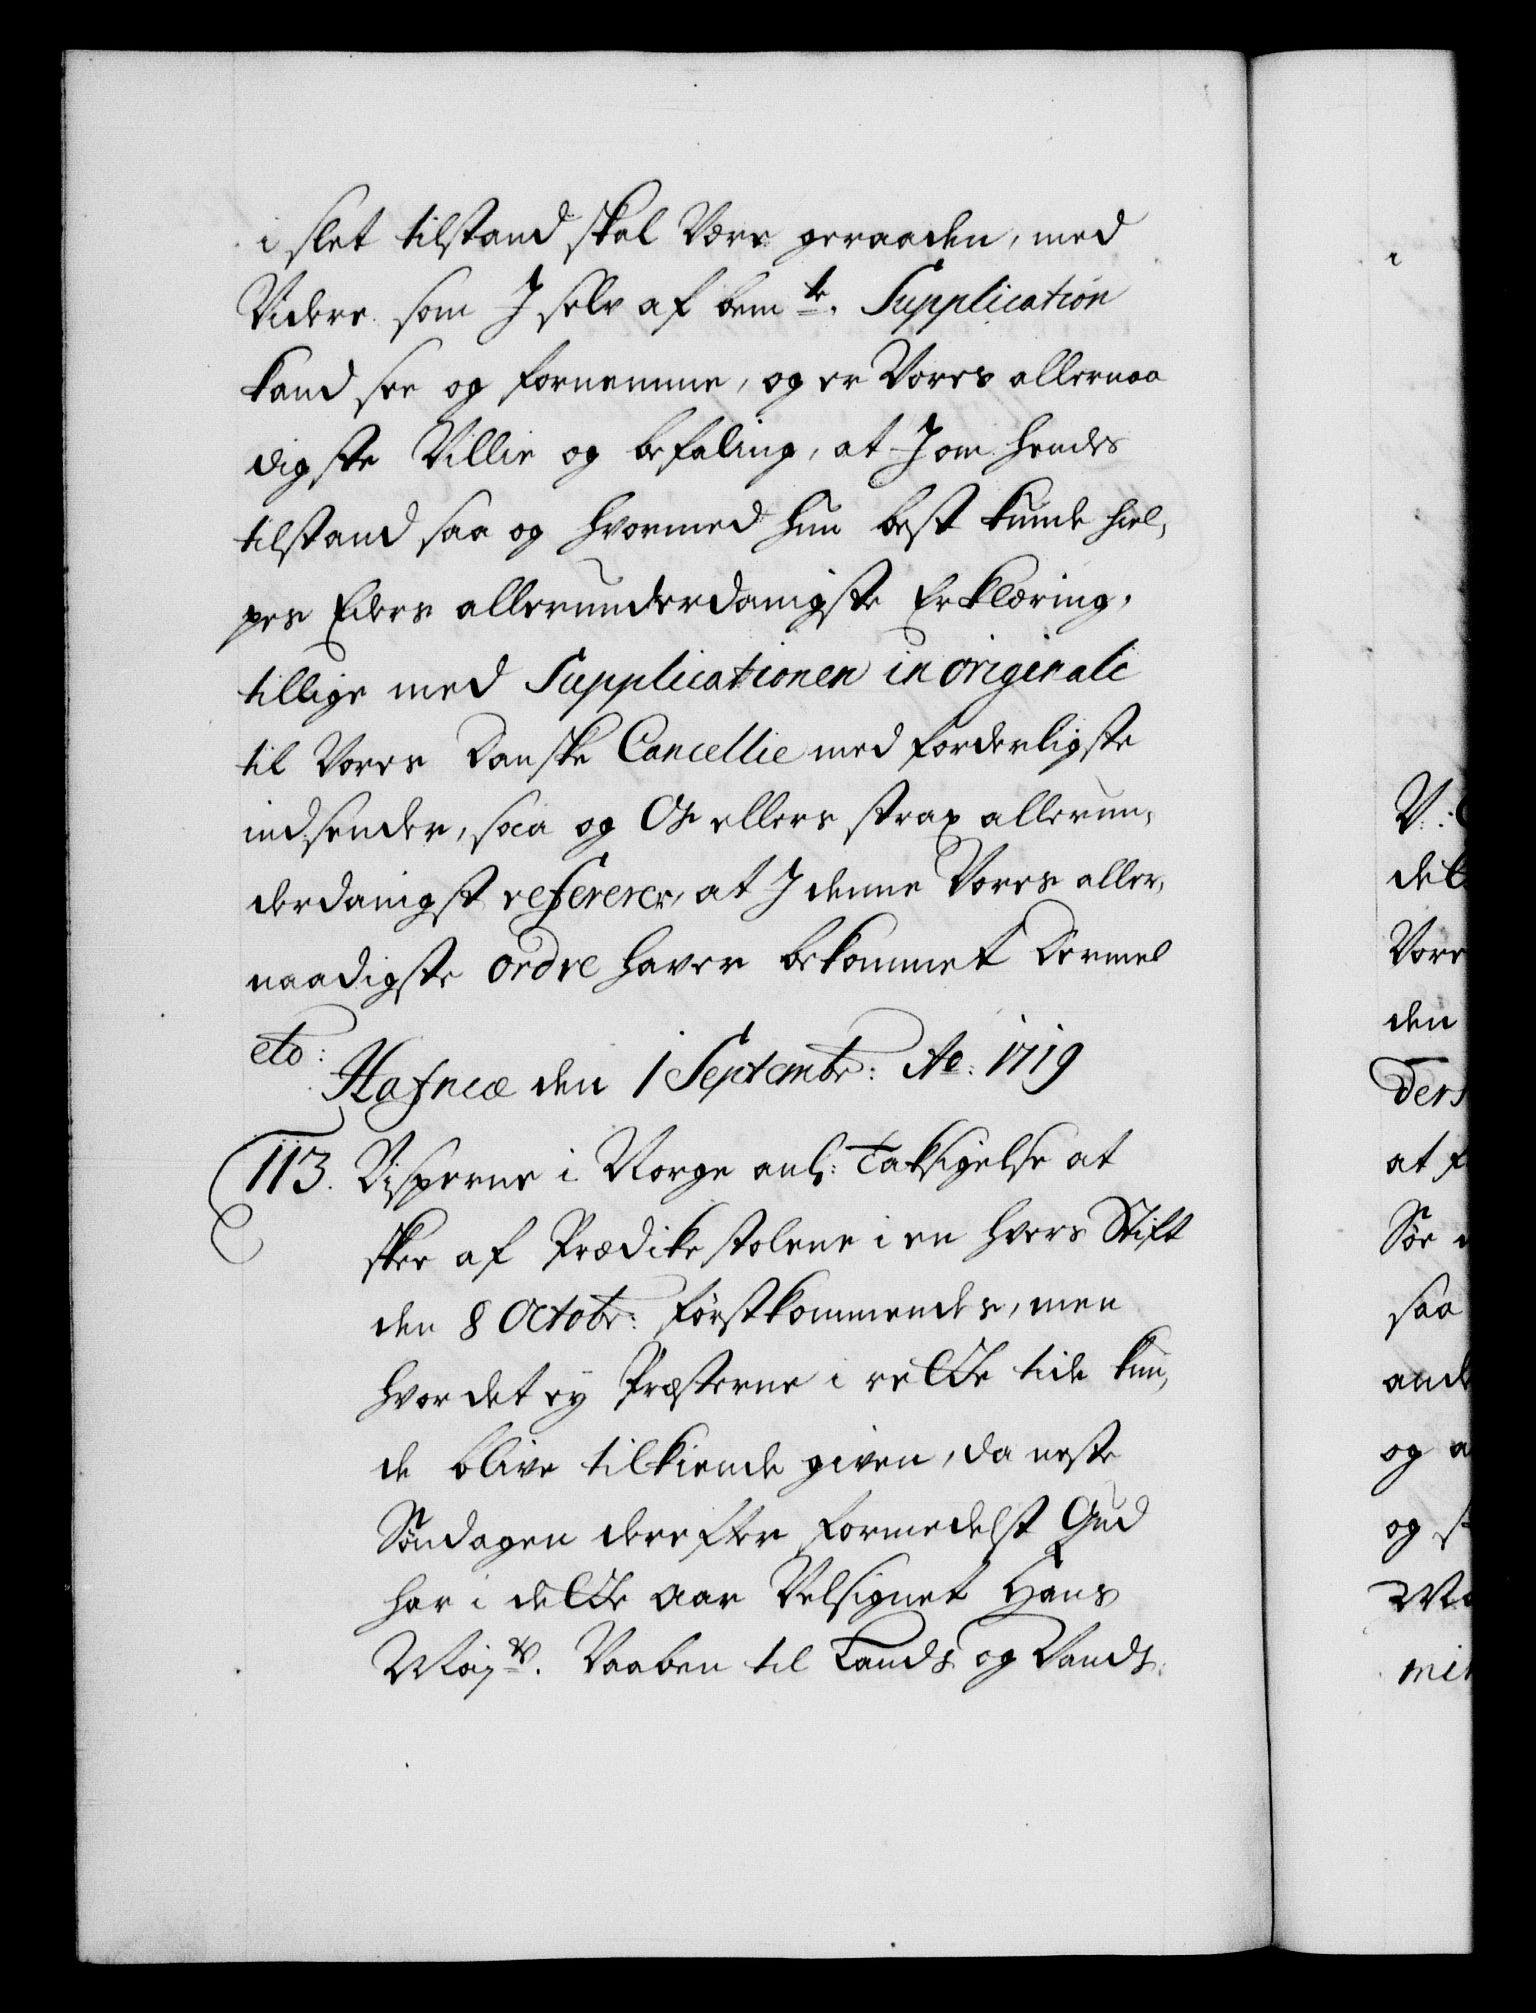 i slet tilstand skal være geraaden, med
Videre som J selv af bem.te Supplication
kand see og fornemme, og er Vores allernaa
digste Villie og befaling, at J om hendes
tilstand saa og hvormed hun best kunde hiel,
pes Eders allerunderdanigste Erklæring,
tillige med Supplicationen in originali
til Vores Danske Cancellie med forderligste
indsender, saa og Os ellers strax allerun,
derdanigst referere, at J denne Vores aller,
naadigste ordre haver bekommet Dermed
etc:
Hafniæ den 1 Septembr: Ao: 1719
113. Bisperne i Norge anl: Taksigelse at
skee af Prædikestolene i en hvers Stift
den 8 Octobr: førstkommendes, men
hvor det ey Præsterne i rette tide kun,
de blive tilkiende given, da neste
Søndagen derefter formedelst Gud
har i dette Aar Velsignet Hans
Mayts. Vaaben til Lands og Vands.
i
V:
det
Vore
den
Ders
at f
Søe
saa
ande
og a
og s
Ma
min